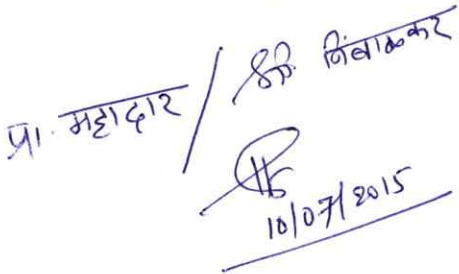 प्रा. महाद्वार / श्री. निंबाळकर
10/07/2015